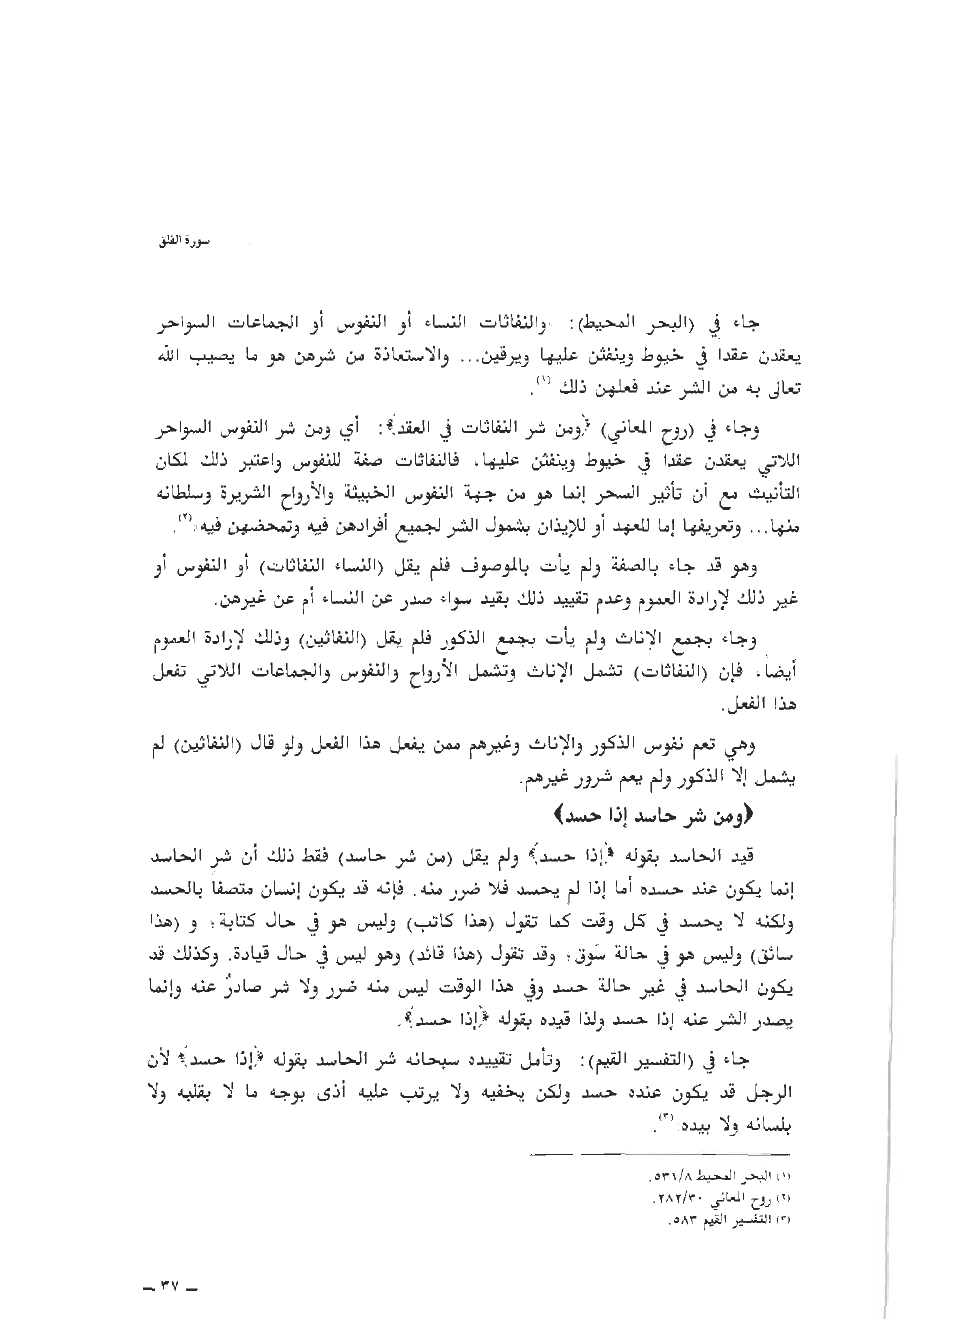 سورة الفلق
جاء في (البحر المحيط): والنفاثات النساء أو النفوس أو الجماعات السواحر
يعقدن عقدا في خيوط وينفثن عليها ويرقين... والاستعاذة من شرهن هو ما يصيب الله
تعالى به من الشر عند فعلهن ذلك (١).
وجاء في (روح المعاني) ﴿ومن شر النفاثات في العقد﴾: أي ومن شر النفوس السواحر
اللاتي يعقدن عقدا في خيوط وينفثن عليها، فالنفاثات صفة للنفوس واعتبر ذلك لمكان
التأنيث مع أن تأثير السحر إنما هو من جهة النفوس الخبيثة والأرواح الشريرة وسلطانه
منها... وتعريفها إما للعهد أو للإيذان بشمول الشر لجميع أفرادهن فيه وتمحضهن فيه (٢).
وهو قد جاء بالصفة ولم يأت بالموصوف فلم يقل (النساء النفاثات) أو النفوس أو
غير ذلك لإرادة العموم وعدم تقييد ذلك بقيد سواء صدر عن النساء أم عن غيرهن.
وجاء بجمع الإناث ولم يأت بجمع الذكور فلم يقل (النفاثين) وذلك لإرادة العموم
أيضاً، فإن (النفاثات) تشمل الإناث وتشمل الأرواح والنفوس والجماعات اللاتي تفعل
هذا الفعل.
وهي تعم نفوس الذكور والإناث وغيرهم ممن يفعل هذا الفعل ولو قال (النفاثين) لم
يشمل إلا الذكور ولم يعم شرور غيرهم.
﴿ومن شر حاسد إذا حسد﴾
قيد الحاسد بقوله ﴿إذا حسد﴾ ولم يقل (من شر حاسد) فقط ذلك أن شر الحاسد
إنما يكون عند حسده أما إذا لم يحسد فلا ضرر منه. فإنه قد يكون إنسان متصفاً بالحسد
ولكنه لا يحسد في كل وقت كما تقول (هذا كاتب) وليس هو في حال كتابة، و (هذا
سائق) وليس هو في حالة سَوق، وقد تقول (هذا قائد) وهو ليس في حال قيادة. وكذلك قد
يكون الحاسد في غير حالة حسد وفي هذا الوقت ليس منه ضرر ولا شر صادرٌ عنه وإنما
يصدر الشر عنه إذا حسد ولذا قيده بقوله ﴿إذا حسد﴾.
جاء في (التفسير القيم): وتأمل تقييده سبحانه شر الحاسد بقوله ﴿إذا حسد﴾ لأن
الرجل قد يكون عنده حسد ولكن يخفيه ولا يرتب عليه أذى بوجه ما لا بقلبه ولا
بلسانه ولا بيده (٣).
(١) البحر المحيط ٥٣١/٨.
(٢) روح المعاني ٢٨٢/٣٠.
(٣) التفسير القيم ٥٨٣.
– ٣٧ –